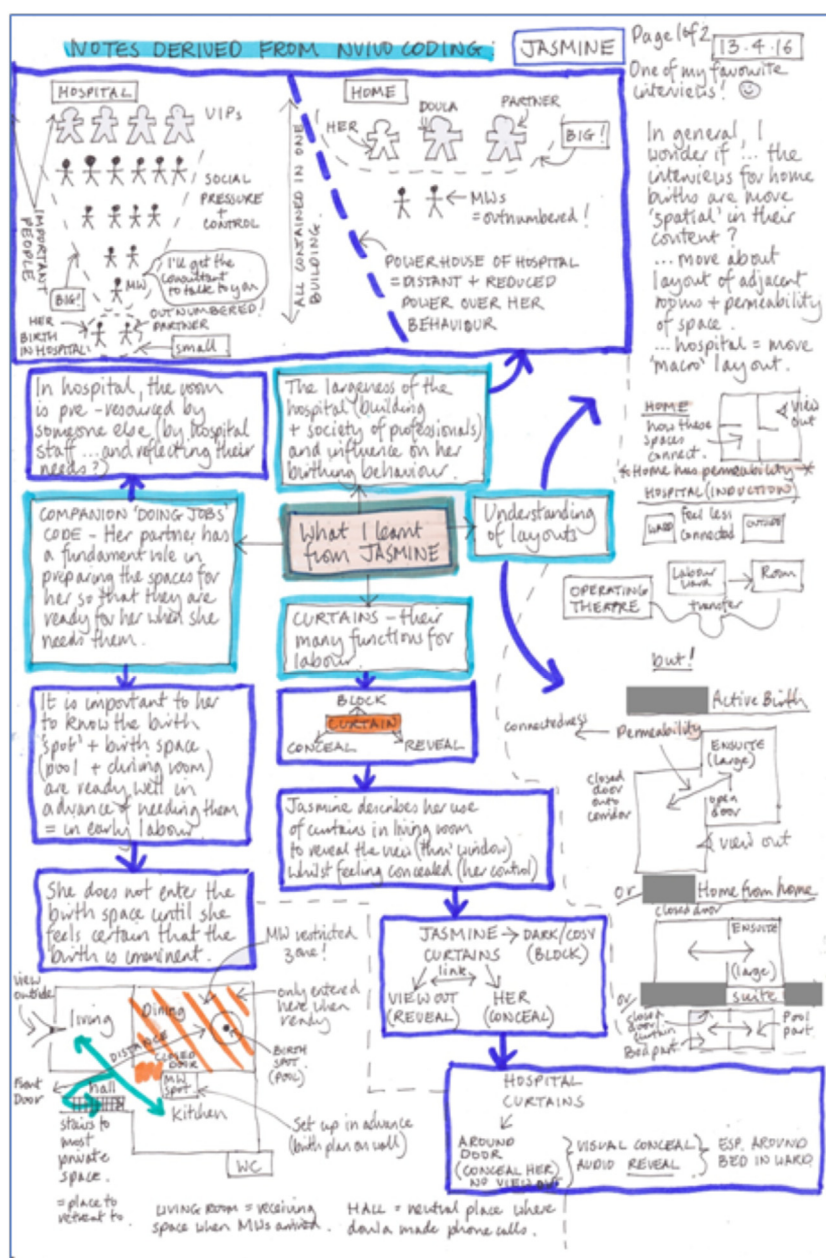 NOTES DERIVED FROM NVIVO CODING.
JASMINE
Page 1 of 2
13.4.16
One of my favourite
interviews!
HOSPITAL
VIPs
SOCIAL
PRESSURE
+
CONTROL
IMPORTANT
PEOPLE
BIG!
MW
I'll get the
consultant
to talk to you
OUTNUMBERED!
HER
BIRTH
IN HOSPITAL
PARTNER
small
ALL CONTAINED IN ONE
BUILDING.
HOME
HER
DOULA
PARTNER
BIG!
MWs
= outnumbered!
POWERHOUSE OF HOSPITAL
= DISTANT + REDUCED
POWER OVER HER
BEHAVIOUR
In general, I
wonder if ... the
interviews for home
births are more
'spatial' in their
content?
... more about
layout of adjacent
rooms + permeability
of space.
... hospital = more
'macro' layout.
HOME
how these
spaces
connect.
view
out
*Home has permeability*
HOSPITAL (INDUCTION)
WARD
feel less
connected
OUTSIDE
Labour
ward
Room
OPERATING
THEATRE
transfer
but!
Active Birth
connectedness
Permeability
ENSUITE
(large)
closed
door
onto
corridor
open
door
view out
or
Home from home
closed door
ENSUITE
(large)
or
suite
closed
door
curtain
Bed part
Pool
part
In hospital, the room
is pre-resourced by
someone else (by hospital
staff ... and reflecting their
needs?)
The largeness of the
hospital (building
+ society of professionals)
and influence on her
birthing behaviour.
COMPANION 'DOING JOBS'
CODE - Her partner has
a fundament role in
preparing the spaces for
her so that they are
ready for her when she
needs them.
What I learnt
from JASMINE
Understanding
of layouts
CURTAINS - their
many functions for
labour.
BLOCK
CURTAIN
CONCEAL
REVEAL
It is important to her
to know the birth
'spot' + birth space
(pool + dining room)
are ready well in
advance of needing them
= in early labour.
Jasmine describes her use
of curtains in living room
to reveal the view (thro' window)
whilst feeling concealed (her control)
She does not enter the
birth space until she
feels certain that the
birth is imminent.
JASMINE
CURTAINS
DARK/COSY
(BLOCK)
link
VIEW OUT
(REVEAL)
HER
(CONCEAL)
view
outside
living
Dining
MW restricted
zone!
only entered
here when
ready
DISTANCE
CLOSED
DOOR
MW
SPOT
BIRTH
SPOT
(POOL)
Front
Door
hall
Kitchen
Set up in advance
(birth plan on wall)
stairs to
most
private
space.
= place to
retreat to.
WC
LIVING ROOM = receiving
space when MWs arrived.
HALL = neutral place where
doula made phone calls.
HOSPITAL
CURTAINS
AROUND
DOOR
(CONCEAL HER
NO VIEW OUT)
VISUAL CONCEAL
AUDIO REVEAL
ESP. AROUND
BED IN WARD.